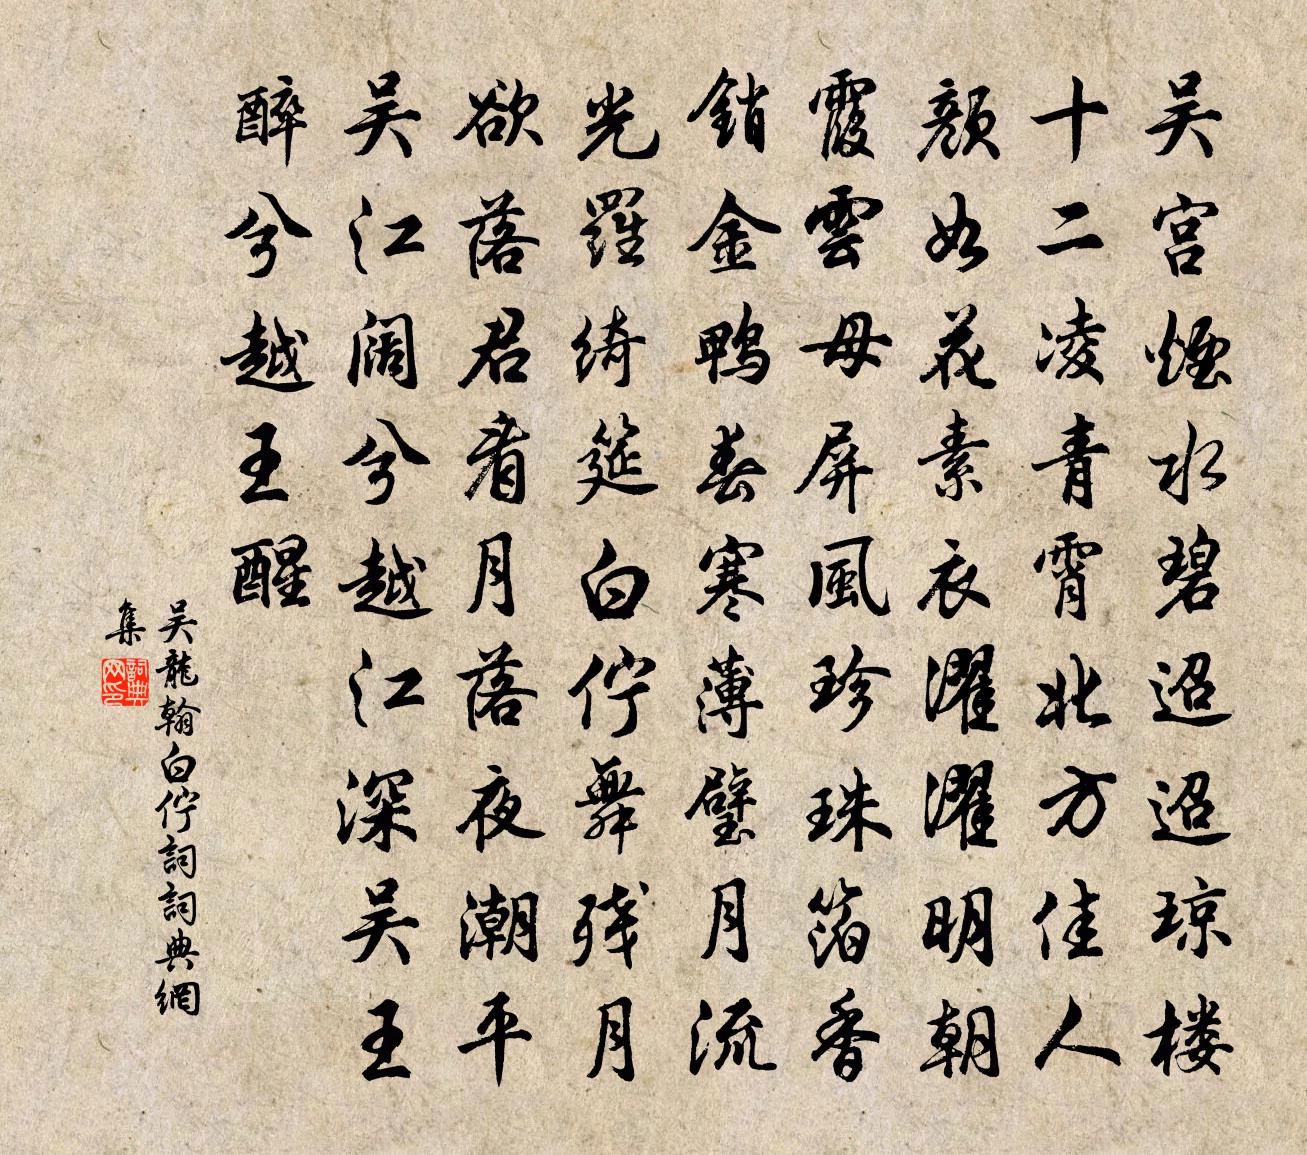 吴宫煙水碧迢迢琼楼
十二凌青霄北方佳人
颜如花素衣濯濯明朝
霞雲母屏風珍珠箔香
銷金鴨春寒薄璧月流
光羅绮筵白佇舞残月
欲落君看月落夜潮平
吴江阔兮越江深吴王
醉兮越王醒
吴龍翰白佇詞詞典網
集
詞典网印